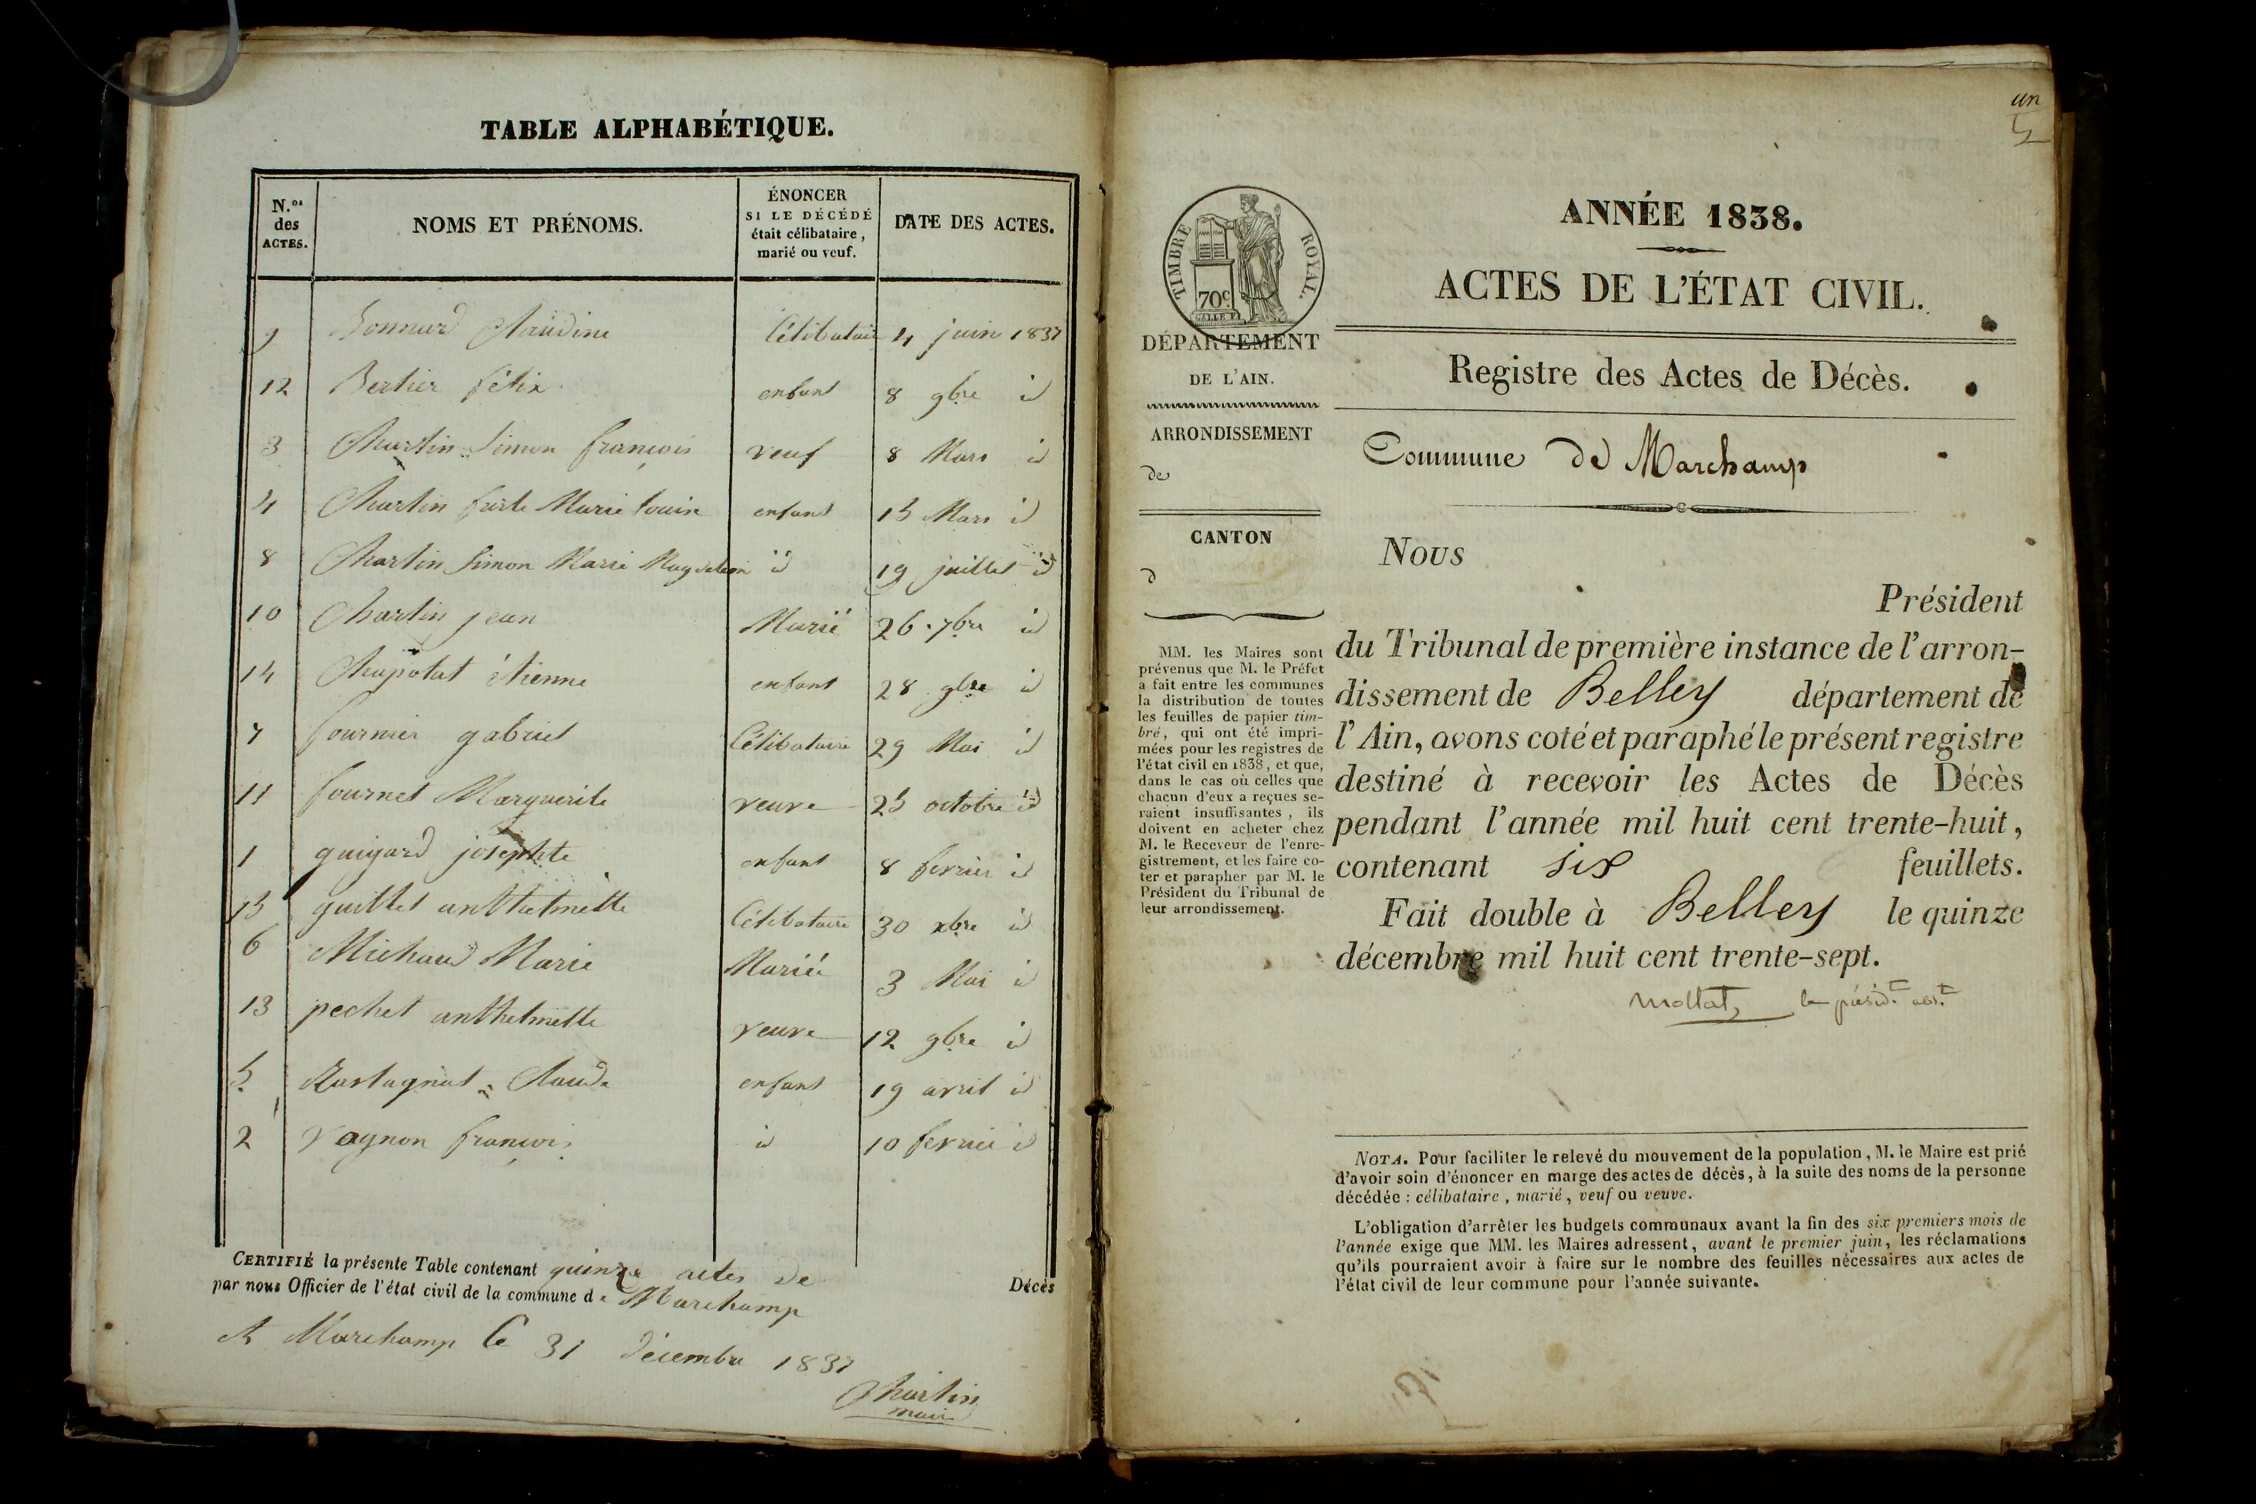 TABLE ALPHABÉTIQUE.
N.os des ACTES.
NOMS ET PRÉNOMS.
ÉNONCER
SI LE DÉCÉDÉ
était célibataire,
marié ou veuf.
DATE DES ACTES.
9 Bonnard Claudine Célibataire 4 juin 1837
12 Bertier félix enfant 8 9bre id
3 Charlin Simon françois veuf 8 Mars id
4 Charlin Marie louise enfant 15 Mars id
8 Charlin Simon Marie Magdelein id 19 juillet id
10 Charlin jean Marié 26 7bre id
14 Chapotat étienne enfant 28 9bre id
7 fournier gabriel Célibataire 29 Mai id
11 fournet Marguerite veuve 25 octobre id
1 guigard josephte enfant 8 fevrier id
15 guillet anthelmette Célibataire 30 xbre id
6 Michaud Marie Mariée 3 Mai id
13 pechet anthelmette veuve 12 9bre id
5 Rastagnat Claude enfant 19 avril id
2 vagnon françois id 10 fevrier id
CERTIFIÉ la présente Table contenant quinze actes de Décès
par nous Officier de l'état civil de la commune de Marchamp
A Marchamp le 31 décembre 1837
Charlin
maire
un
ANNÉE 1838.
ACTES DE L'ÉTAT CIVIL.
TIMBRE ROYAL.
70c
DÉPARTEMENT
DE L'AIN.
Registre des Actes de Décès.
ARRONDISSEMENT
de
Commune de Marchamp
CANTON
d
Nous
Président
du Tribunal de première instance de l'arron-
dissement de Belley département de
l'Ain, avons coté et paraphé le présent registre
destiné à recevoir les Actes de Décès
pendant l'année mil huit cent trente-huit,
contenant six feuillets.
Fait double à Belley le quinze
décembre mil huit cent trente-sept.
Mollat, le présidt abst
MM. les Maires sont
prévenus que M. le Préfet
a fait entre les communes
la distribution de toutes
les feuilles de papier tim-
bré, qui ont été impri-
mées pour les registres de
l'état civil en 1838, et que,
dans le cas où celles que
chacun d'eux a reçues se-
raient insuffisantes, ils
doivent en acheter chez
M. le Receveur de l'enre-
gistrement, et les faire co-
ter et parapher par M. le
Président du Tribunal de
leur arrondissement.
NOTA. Pour faciliter le relevé du mouvement de la population, M. le Maire est prié
d'avoir soin d'énoncer en marge des actes de décès, à la suite des noms de la personne
décédée : célibataire, marié, veuf ou veuve.
L'obligation d'arrêter les budgets communaux avant la fin des six premiers mois de
l'année exige que MM. les Maires adressent, avant le premier juin, les réclamations
qu'ils pourraient avoir à faire sur le nombre des feuilles nécessaires aux actes de
l'état civil de leur commune pour l'année suivante.